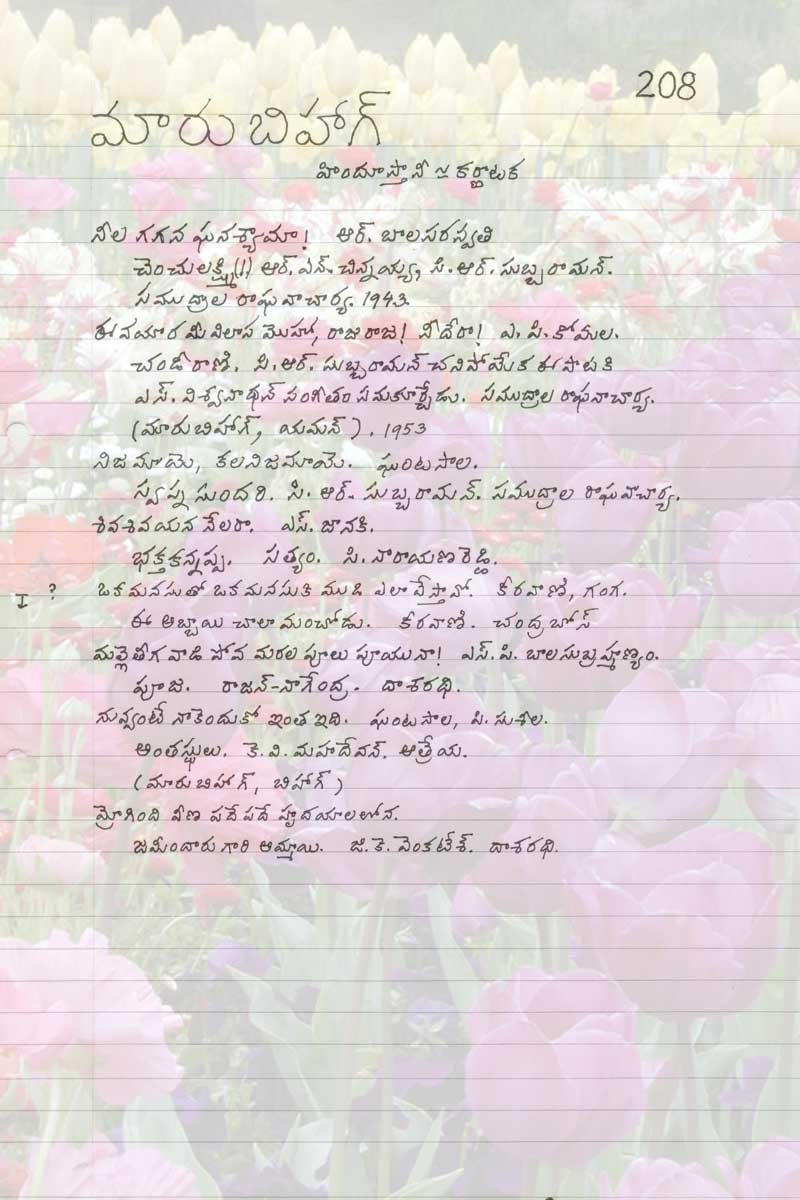 208
మారుబిహాగ్
హిందూస్తానీ ~ కర్ణాటక
నీల గగన ఘనశ్యామా! ఆర్. బాలసరస్వతి
చెంచులక్ష్మి(1) ఆర్. ఎన్. చిన్నయ్య, సి. ఆర్. సుబ్బరామన్.
సముద్రాల రాఘవాచార్య. 1943.
ఈ వయారమీ విలాస మొహో, రాజరాజ! నీదేరా! ఎ. పి. కోమల.
చండీరాణి. సి. ఆర్. సుబ్బరామన్ చనిపోయేక ఈ పాటకి
ఎస్. విశ్వనాథన్ సంగీతం సమకూర్చేడు. సముద్రాల రాఘవాచార్య.
(మారుబిహాగ్, యమన్). 1953
నిజమాయె, కల నిజమాయె. ఘంటసాల.
స్వప్న సుందరి. సి. ఆర్. సుబ్బరామన్. సముద్రాల రాఘవాచార్య.
శివశివయన నేలరా. ఎస్. జానకి.
భక్తకన్నప్ప. సత్యం. సి. నారాయణరెడ్డి.
I ? ఒక మనసుతో ఒక మనసుకి ముడి ఎలా వేస్తావో. కీరవాణి, గంగ.
ఈ అబ్బాయి చాలా మంచోడు. కీరవాణి. చంద్రబోస్
మల్లెతీగ వాడి పోవ మరల పూలు పూయునా! ఎస్. పి. బాలసుబ్రహ్మణ్యం.
పూజ. రాజన్-నాగేంద్ర. దాశరథి.
నువ్వంటే నాకెందుకో ఇంత ఇది. ఘంటసాల, పి. సుశీల.
అంతస్థులు. కె. వి. మహాదేవన్. ఆత్రేయ.
(మారుబిహాగ్, బిహాగ్)
మ్రోగింది వీణ పదేపదే హృదయాలలోన.
జమీందారుగారి అమ్మాయి. జి. కె. వెంకటేశ్. దాశరథి.